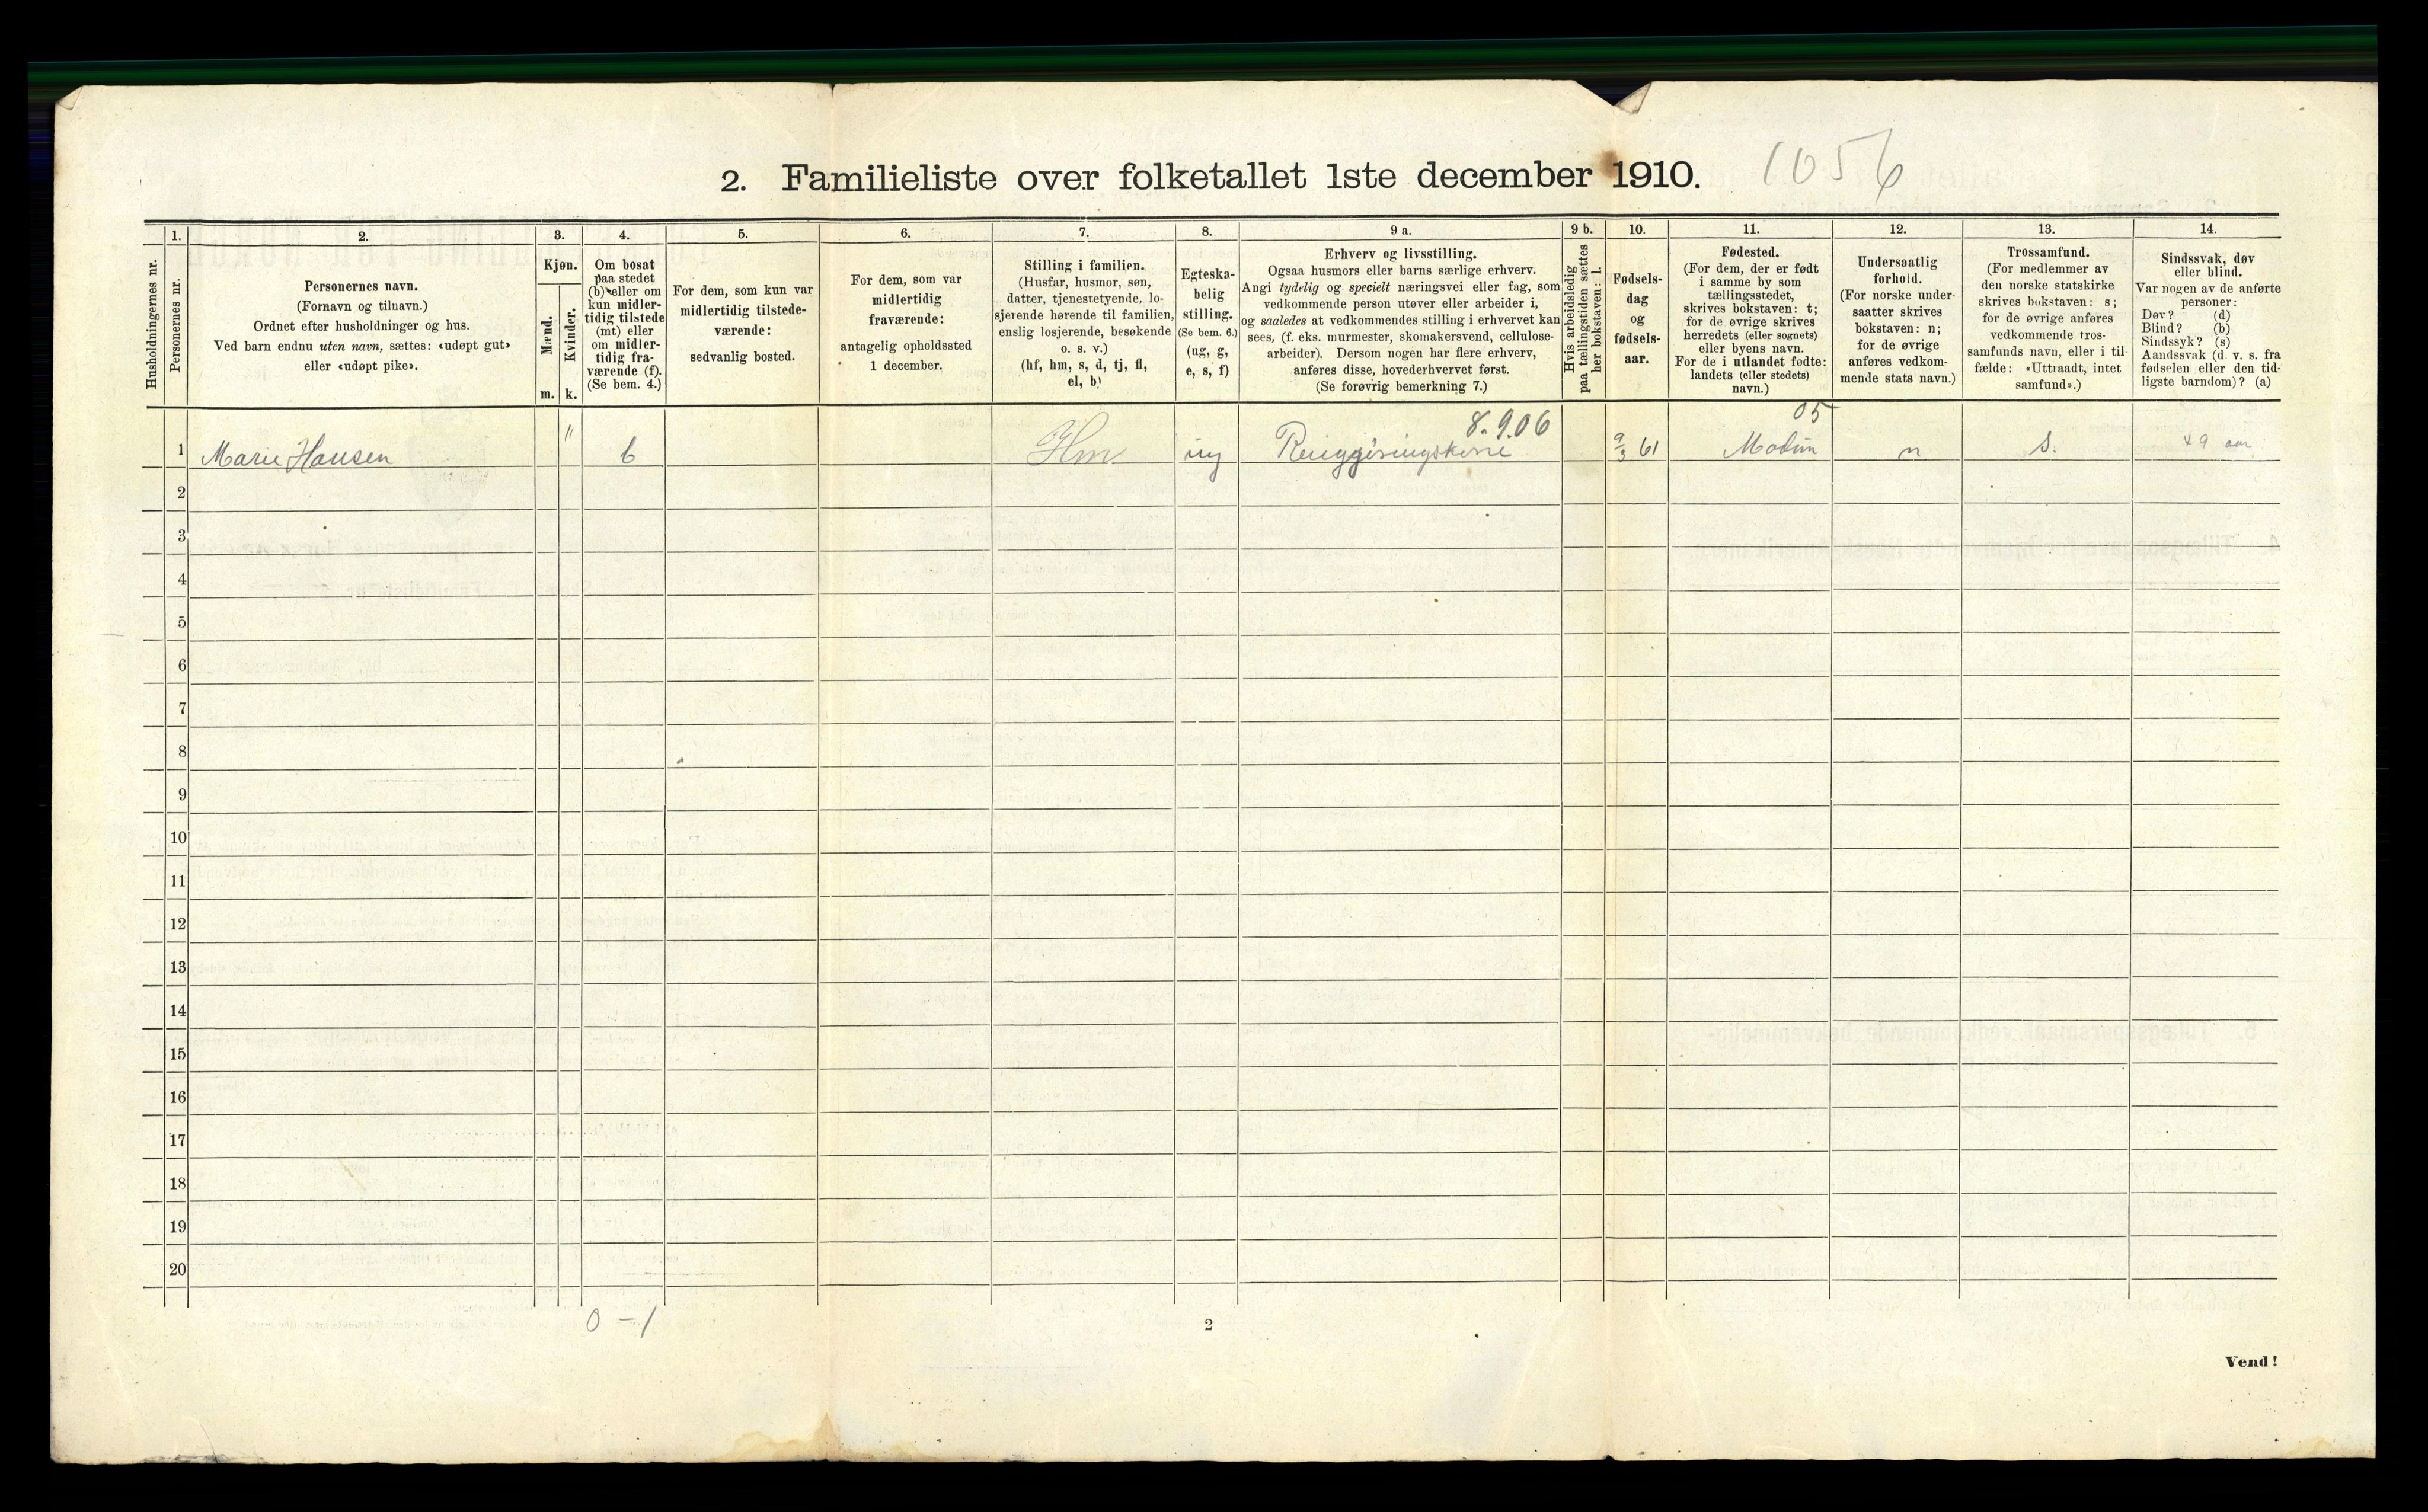 2. Familieliste over folketallet 1ste december 1910. 1056
Husholdningernes nr.
1.
Personernes nr.
2.
Personernes navn.
(Fornavn og tilnavn.)
Ordnet efter husholdninger og hus.
Ved barn endnu uten navn, sættes: «udøpt gut»
eller «udøpt pike».
3.
Kjøn.
Mænd.
Kvinder.
m. k.
4.
Om bosat
paa stedet
(b) eller om
kun midler-
tidig tilstede
(mt) eller
om midler-
tidig fra-
værende (f).
(Se bem. 4.)
5.
For dem, som kun var
midlertidig tilstede-
værende:
sedvanlig bosted.
6.
For dem, som var
midlertidig
fraværende:
antagelig opholdssted
1 december.
7.
Stilling i familien.
(Husfar, husmor, søn,
datter, tjenestetyende, lo-
sjerende hørende til familien,
enslig losjerende, besøkende
o. s. v.)
(hf, hm, s, d, tj, fl,
el, b)
8.
Egteska-
belig
stilling.
(Se bem. 6.)
(ug, g,
e, s, f)
9 a.
Erhverv og livsstilling.
Ogsaa husmors eller barns særlige erhverv.
Angi tydelig og specielt næringsvei eller fag, som
vedkommende person utøver eller arbeider i,
og saaledes at vedkommendes stilling i erhvervet kan
sees, (f. eks. murmester, skomakersvend, cellulose-
arbeider). Dersom nogen har flere erhverv,
anføres disse, hovederhvervet først.
(Se forøvrig bemerkning 7.)
9 b.
Hvis arbeidsledig
paa tællingstiden sættes
her bokstaven: l.
10.
Fødsels-
dag
og
fødsels-
aar.
11.
Fødested.
(For dem, der er født
i samme by som
tællingsstedet,
skrives bokstaven: t;
for de øvrige skrives
herredets (eller sognets)
eller byens navn.
For de i utlandet fødte:
landets (eller stedets)
navn.)
12.
Undersaatlig
forhold.
(For norske under-
saatter skrives
bokstaven: n;
for de øvrige
anføres vedkom-
mende stats navn.)
13.
Trossamfund.
(For medlemmer av
den norske statskirke
skrives bokstaven: s;
for de øvrige anføres
vedkommende tros-
samfunds navn, eller i til-
fælde: «Uttraadt, intet
samfund».)
14.
Sindssvak, døv
eller blind.
Var nogen av de anførte
personer:
Døv? (d)
Blind? (b)
Sindssyk? (s)
Aandssvak (d. v. s. fra
fødselen eller den tid-
ligste barndom)? (a)
8.9.06 05
1 Marie Hansen " b Hm ug 9/3 61 Modum n S. 49 aar
2
3
4
5
6
7
8
9
10
11
12
13
14
15
16
17
18
19
20
0 - 1
2
Vend!